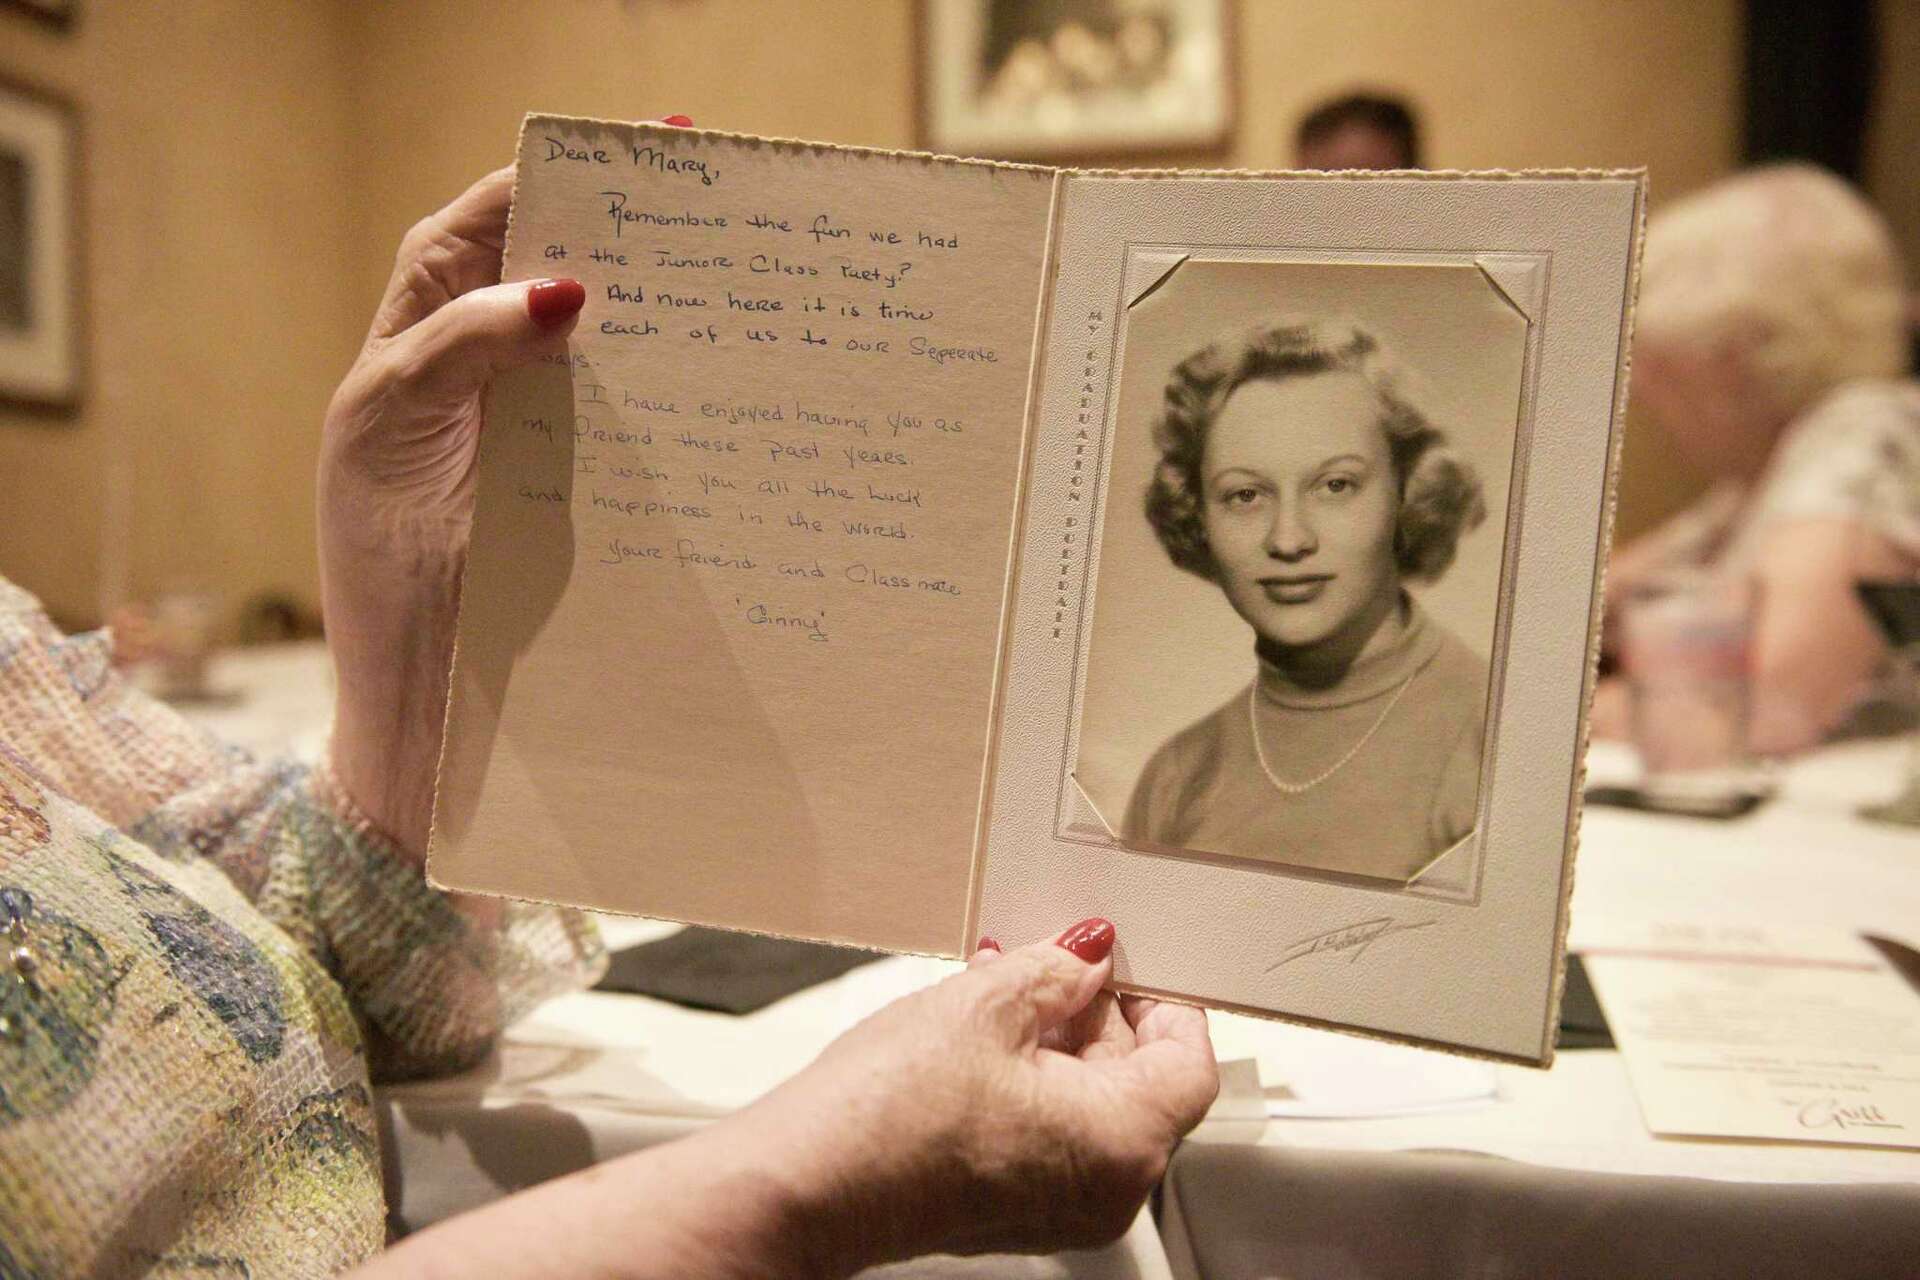 Dear Mary,
Remember the fun we had
at the Junior Class Party?
And now here it is time
each of us to our Seperate
ways.
I have enjoyed having you as
my friend these past years.
I wish you all the luck
and happiness in the world.
Your friend and Classmate
'Ginny'
MY GRADUATION PORTRAIT
Grill